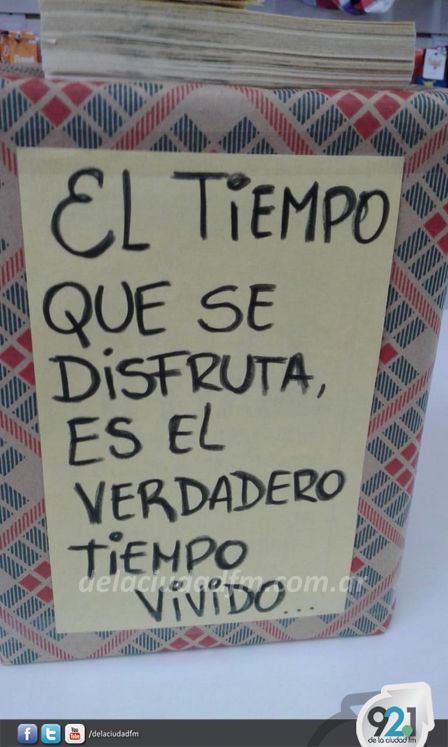 EL TiEMPO
QUE SE
DiSFRUTA,
ES EL
VERDADERO
TiEMPO
ViViDO...
delaciudadfm.com.ar
/delaciudadfm
92.1
de la ciudad fm